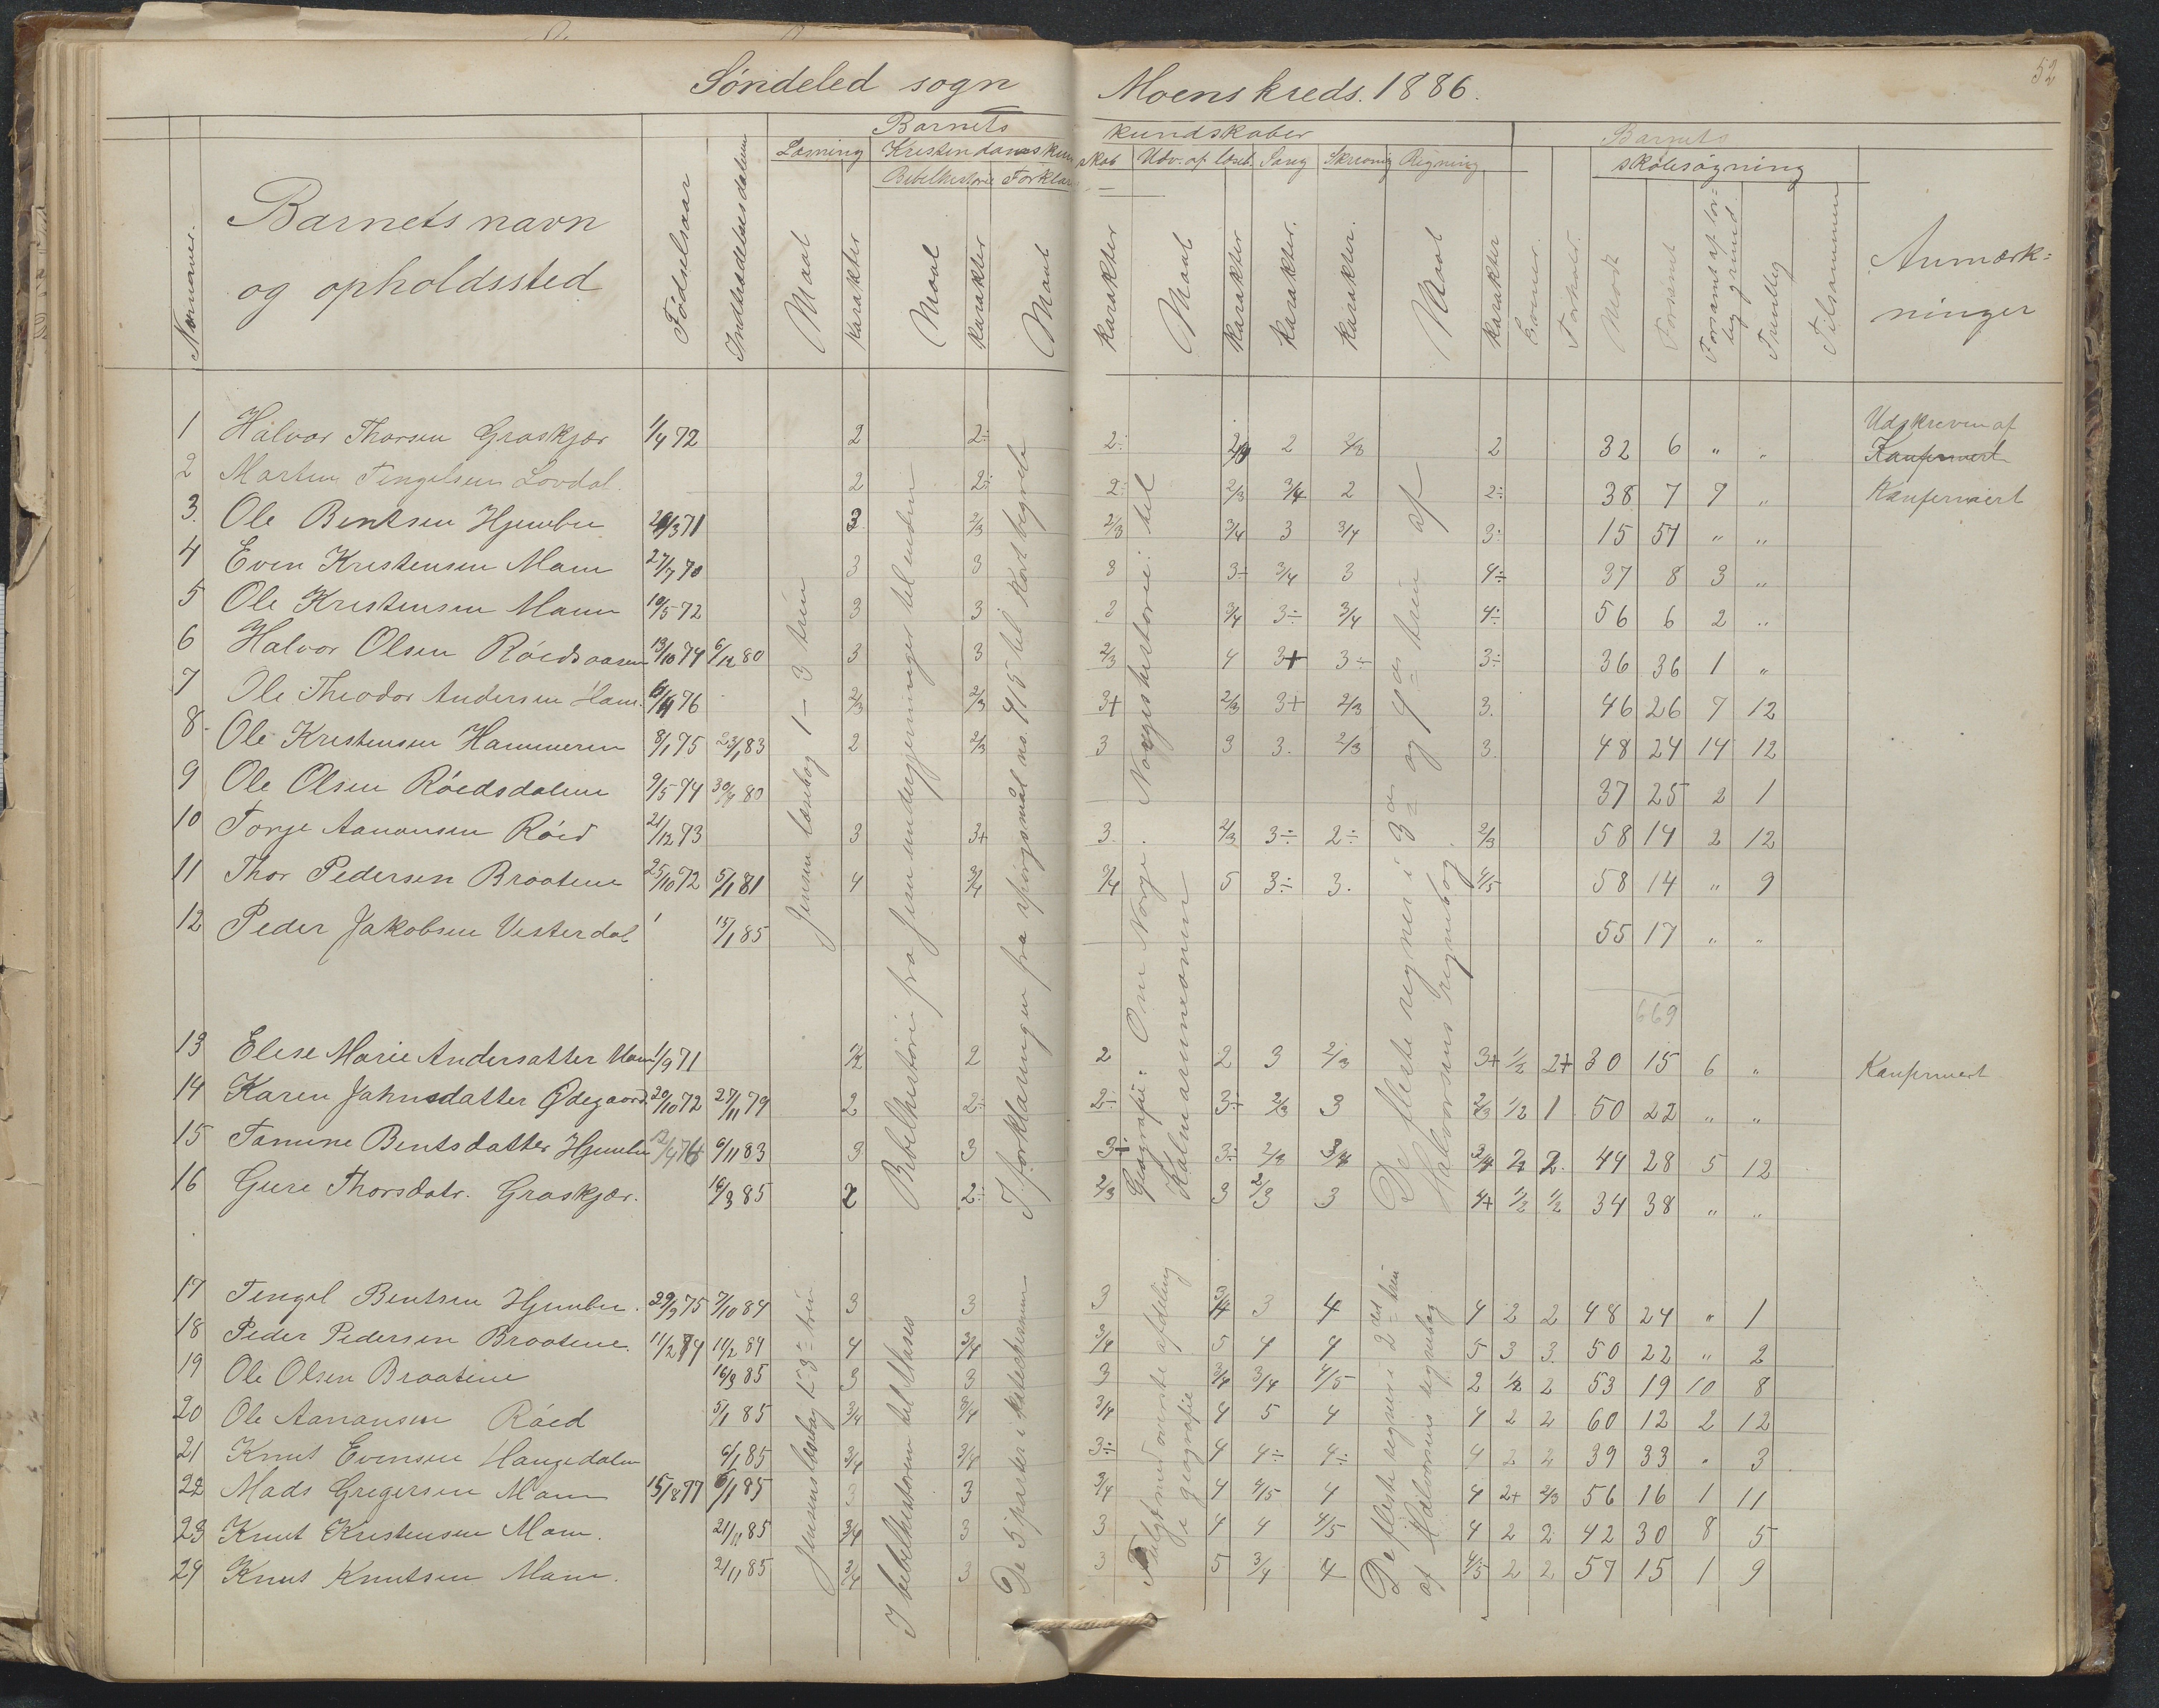 52
Søndeled sogn Moens kreds. 1886.
Barnets kundskaber
Barnets skolesøgning
Læsning Kristendomskundskab Udv. af læseb. Sang Skrivning Regning
Bibelhistorie Forklar.
Nummer. Barnets navn og opholdssted Fødselsaar Indtrædelsesdatum Maal Karakter Maal Karakter Maal Karakter Maal Karakter Karakter. Karakter. Maal Karakter Evner. Forhold. Mødt Forsømt Forsømt af lov- lig grund. Frivillig Tilsammen Anmærk- ninger
1 Halvor Thorsen Graskjær 1/4 72 2 2÷ 2÷ 2/3 2 2/3 2 32 6 " " Udskreven af
Kanfermert
2 Martin Tengelsen Lovdal. 2 2÷ 2÷ 2/3 3/4 2 2÷ 38 7 7 " Kanfermert
3. Ole Bentsen Hjembu 3 71 3 2/3 2/3 3/4 3 3/4 3÷ 15 57 " "
4 Even Kristensen Moen 27/7 70 3 3 3 3÷ 3/4 3 4÷ 37 8 3 "
5 Ole Kristensen Moen 10/5 72 3 3 3 3/4 3÷ 3/4 4÷ 56 6 2 "
6 Halvor Olsen Röedsaasen 13/10 74 6/12 80 3 3 2/3 4 3+ 3÷ 3÷ 36 36 1 "
7 Ole Theodor Andersen Ham. 76 2/3 2/3 3+ 2/3 3+ 2/3 3. 46 26 7 12
8. Ole Kristensen Hammeren 8/1 75 23/1 83 2 2/3 3 3 3. 2/3 3. 48 24 14 12
9 Ole Olsen Röedsdalene 9/5 74 30/9 80 37 25 2 1
10 Torje Aanonsen Röed 21/12 73 3 3+ 3. 2/3 3÷ 2÷ 2/3 58 14 2 12
11 Thor Pedersen Braatene 25/10 72 5/1 81 4 3/4 3/4 5 3÷ 3. 4/5 58 14 " 9
12 Peder Jakobsen Vesterdal 15/1 85 55 17 " "
669
13 Elise Marie Andersatter Ham 1/9 71 1/2 2 2 2 3 2/3 3+ 1/2 2+ 30 15 6 " Kanfermert
14 Karen Jahnsdatter Ødegaard. 20/10 72 27/11 79 2 2÷ 2÷ 3÷ 2/3 3 2/3 1/2 1 50 22 " "
15 Tamine Bentsdatter Hjembu 6/11 83 3 3 3÷ 3÷ 2/3 3/4 3/4 2 2. 44 28 5 12
16 Gure Thorsdatr. Graskjær. 16/3 85 2 2÷ 2/3 3 2/3 3 4+ 1/2 1/2 34 38 " "
17 Tengel Bentsen Hjembu. 29/9 75 7/10 84 3 3 3 3/4 3 4 4 2 2 48 24 " 1
18 Peder Pedersen Braatene. 11/2 74 11/2 84 4 3/4 3/4 5 4 4 5 3 3. 50 22 " 2
19 Ole Olsen Braatene 16/3 85 3 3 3 3/4 3/4 4/5 2 1/2 2 53 19 10 8
20 Ole Aanonsen Röed 5/1 85 3/4 3/4 3/4 4 5 4 4 2 2 60 12 2 12
21 Knut Evensen Haugedalen 6/1 85 3/4 3/4 3÷ 4 4÷ 4÷ 4 2 2 39 33 " 3
22 Mads Gregersen Moen 15/8 77 6/1 85 3 3 3/4 4 4/5 4 4 2+ 2/3 56 16 1 11
23 Knut Kristensen Moen. 21/11 85 3/4 3 3 4 4 4/5 4 2 2 42 30 8 5
24 Knut Knutsen Moen. 21/11 85 3/4 3 3 5 3/4 4 4/5 2 2 57 15 1 9
Jensen læsebog 1-3 trin
Bibelhistorie fra Jesu undergjerninger til enden
I forklaringen fra spörgsmål no. 415 til Kort begreb
Geografi: Om Norge. Norges historie: til
Kalmarunionen
De fleste regner i 3die og 4de trin af
Halvorsens regnebog.
Jensens læsebog 1-3die trin
I bibelhistorien til Moses
De 5 parter i katekismen
Fulgt med øverste afdeling
i geografie
De fleste regner i 2det trin
af Halvorsens regnebog